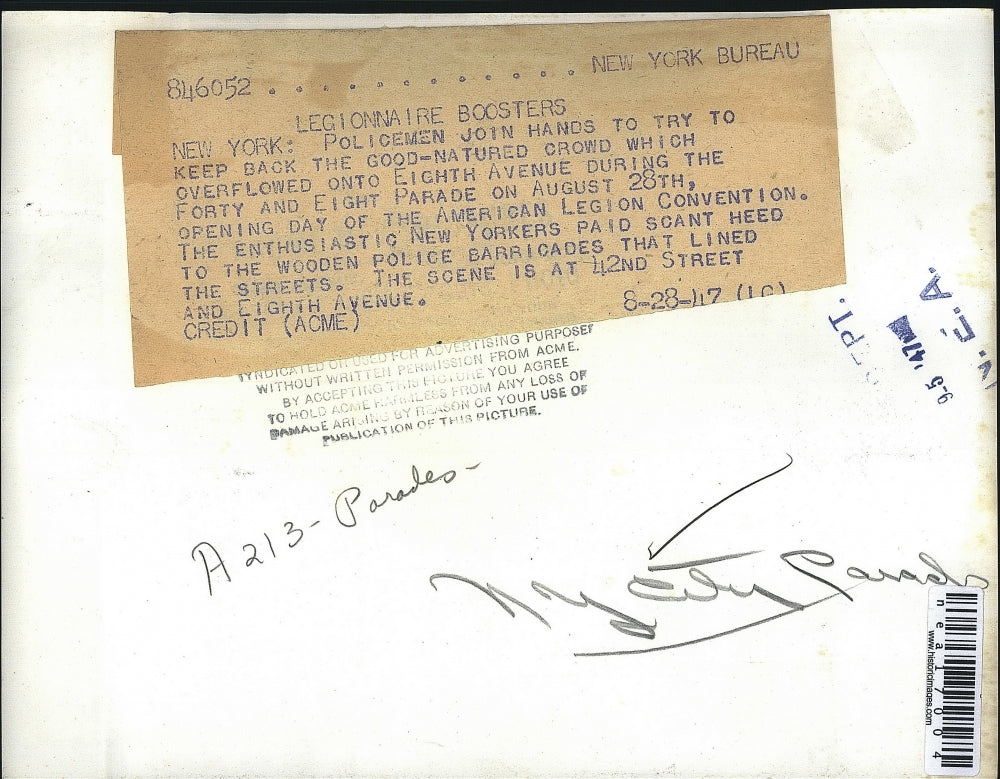 846052 . . . . . . . . . . . . NEW YORK BUREAU
LEGIONNAIRE BOOSTERS
NEW YORK: POLICEMEN JOIN HANDS TO TRY TO
KEEP BACK THE GOOD-NATURED CROWD WHICH
OVERFLOWED ONTO EIGHTH AVENUE DURING THE
FORTY AND EIGHT PARADE ON AUGUST 28TH,
OPENING DAY OF THE AMERICAN LEGION CONVENTION.
THE ENTHUSIASTIC NEW YORKERS PAID SCANT HEED
TO THE WOODEN POLICE BARRICADES THAT LINED
THE STREETS. THE SCENE IS AT 42ND STREET
AND EIGHTH AVENUE.
CREDIT (ACME) 8-28-47 (LC)
SYNDICATED OR USED FOR ADVERTISING PURPOSES
WITHOUT WRITTEN PERMISSION FROM ACME.
BY ACCEPTING THIS PICTURE YOU AGREE
TO HOLD ACME HARMLESS FROM ANY LOSS OR
DAMAGE ARISING BY REASON OF YOUR USE OF
PUBLICATION OF THIS PICTURE.
PT.
9-5 '47
N. E. A.
A 213 - Parades -
NY City Parade
neal7004
www.historicimages.com